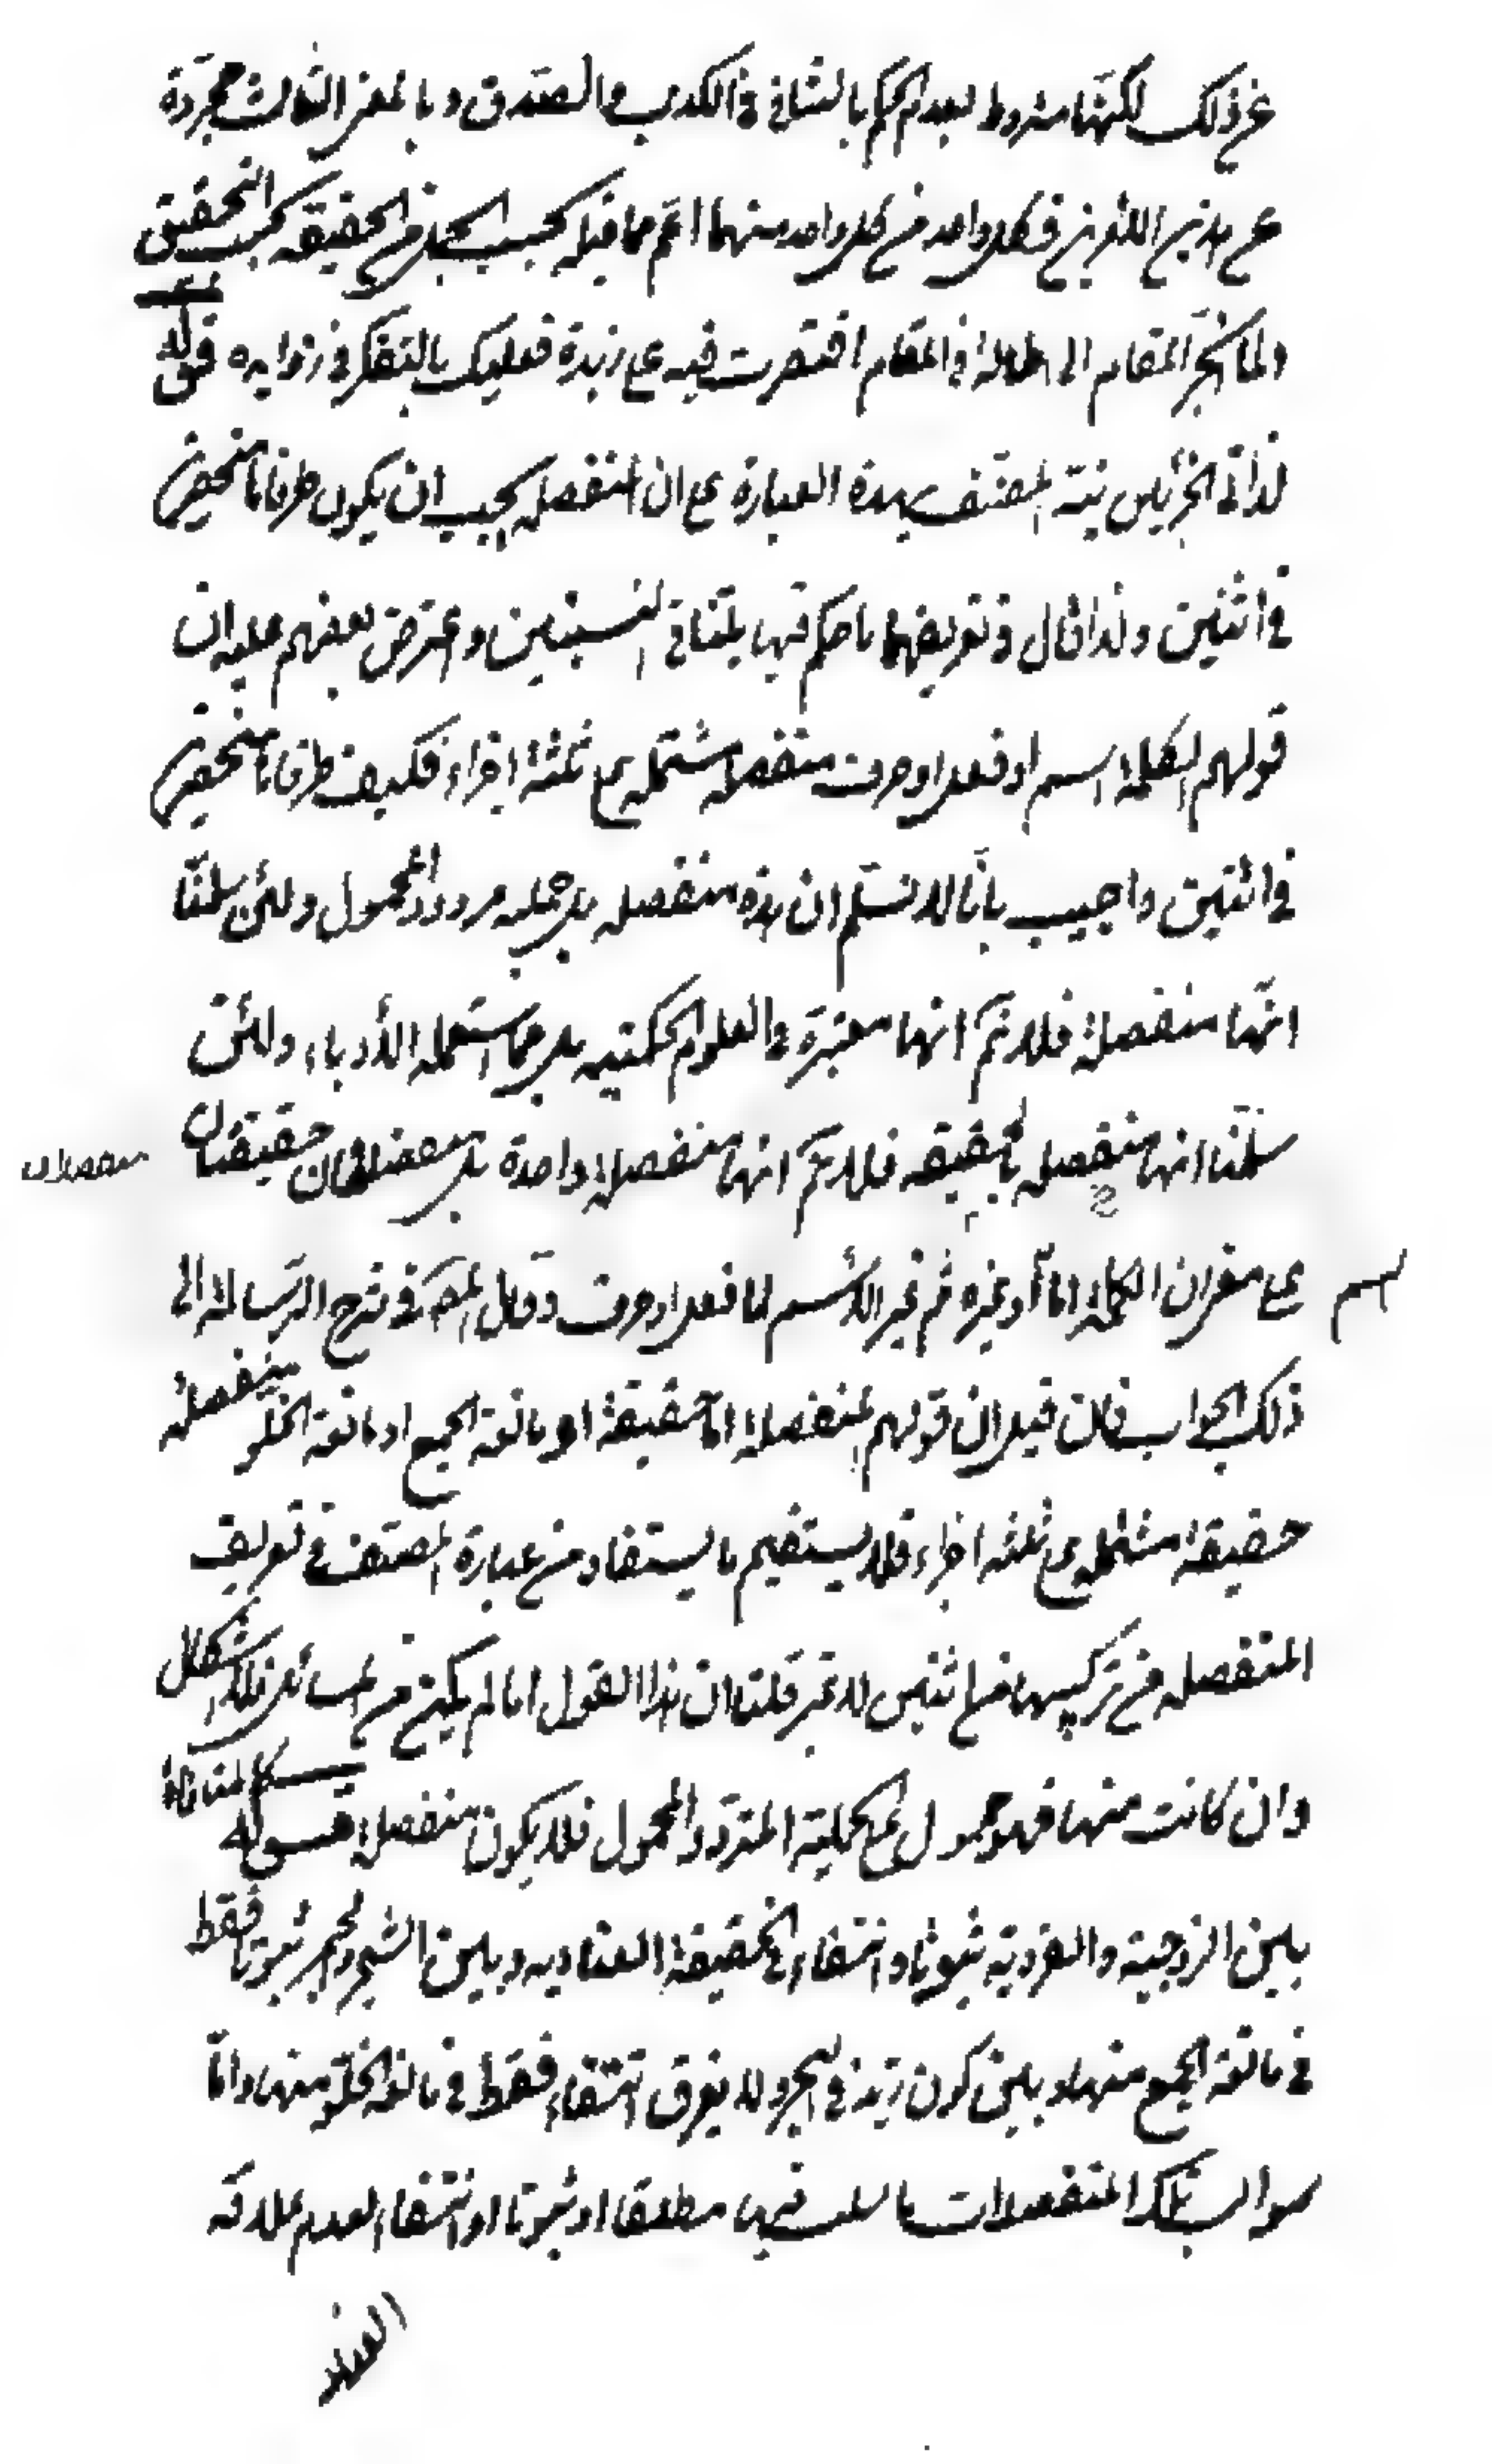 عن ذلك لكنها مشروط بعدم الحكم بالتنافي في الكذب والصدق وبالمعنى الثالث مجردة
عن هذين اللذين فكل واحد من كل واحد منهما اعم مما قبله بحسب الحمل في الحقيقة بحسب التحقيق
ولما انجر المقام الى اطالة في المقام اقتصرت فيه على زبدة فعليك بالتفكر في زوايده قوله
لذاتي الجزئين نبه المصنف بهذه العبارة على ان المنفصلة يجب ان يكون طرفاها منحصرين
في اثنين ولذا قال في تعريفها ما حكم فيها بتنافي النسبتين واعترض بعضهم عليه ان
قولهم الكلمة اسم او فعل او حرف منفصلة مشتملة على ثلثة اجزاء فكيف طرفاها منحصرين
في اثنين واجيب بانا لا نسلم ان هذه منفصلة بل حملية مردد المحمول ولئن سلمنا
انها منفصلة فلا نم انها معتبرة في العلوم الحكمية بل مما استعمله الأدباء ولئن
سلمنا انها منفصلة حقيقية فلا نم انها منفصلة واحدة بل منفصلتان حقيقتان
منفصلات
على معنى ان الكلمة اما او غيره ثم غير الاسم اما فعل او حرف وقال المص في شرح الرسالة الى
اسم
ذلك الجواب فان قيل ان قولهم المنفصلة اما حقيقة او مانعة الجمع او مانعة الخلو منفصلة
حقيقة مشتملة على ثلثة اجزاء فلا يستقيم ما يستفاد من عبارة المصنف في تعريف
المنفصلة من تركيبها من اثنين لا غير قلنا ان هذا القول اما لم يكن من المسائل فلا اشكال
وان كانت منها فهو محمول على الحملية المتردد المحمول فلا يكون منفصلة قوله كالمنافاة
بين الزوجية والفردية ثبوتا وانتفاء في الحقيقة العنادية وبين الشجر والحجر ثبوتا فقط
في مانعة الجمع منها وبين كون زيد في البحر ولا يغرق انتفاء فقط في مانعة الخلو منها واما
سوالب تلك المنفصلات ما سلب فيها مطلقا او ثبوتا او انتفاء لعدم علاقة
العناد